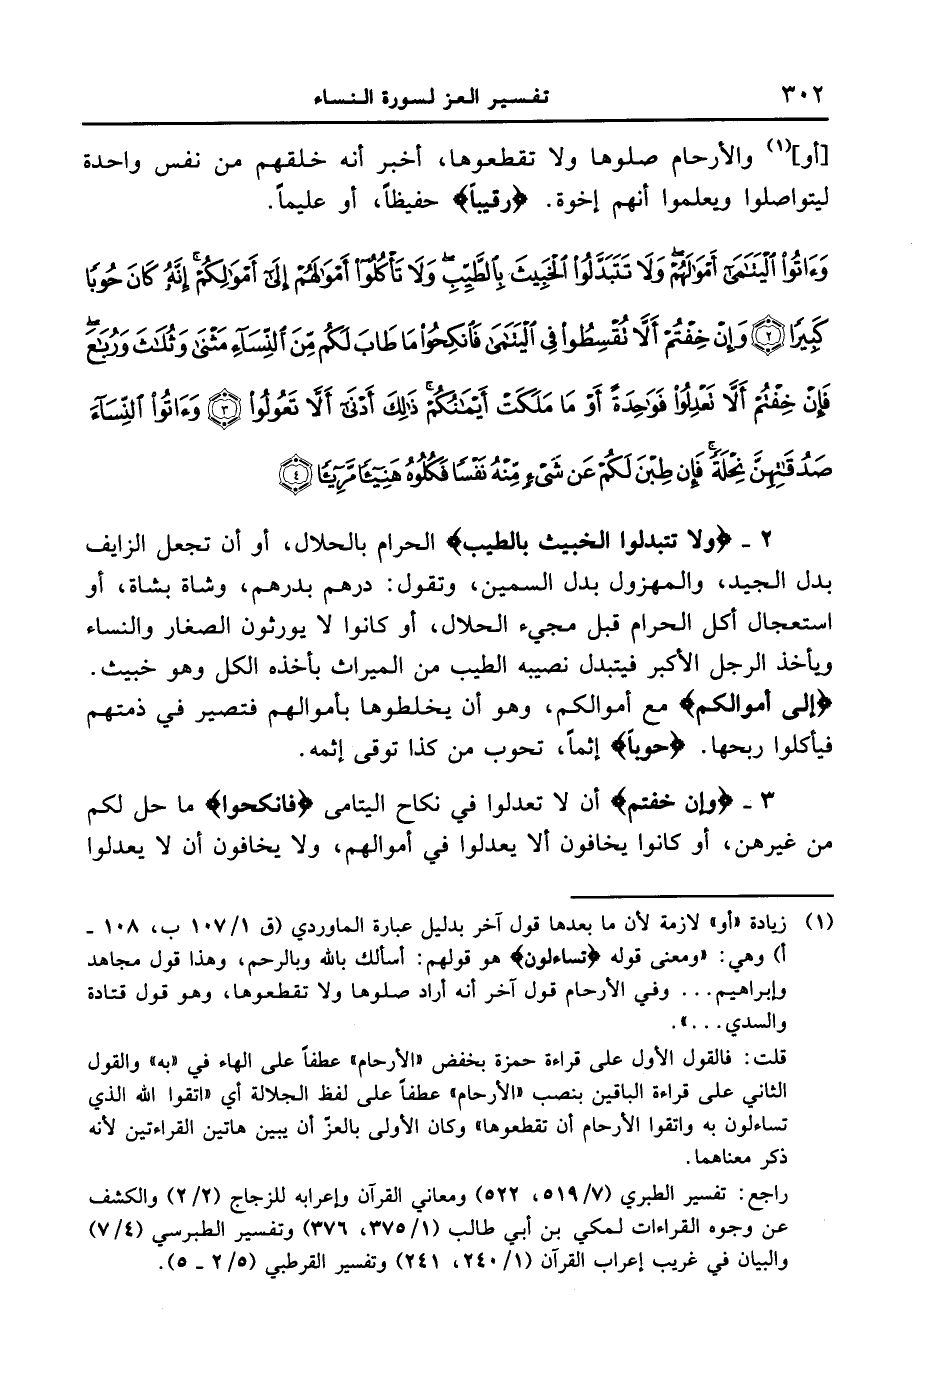 ٣٠٢ تفسير العز لسورة النساء
[أو](١) والأرحام صلوها ولا تقطعوها، أخبر أنه خلقهم من نفس واحدة
ليتواصلوا ويعلموا أنهم إخوة. ﴿رقيباً﴾ حفيظاً، أو عليماً.
وَءَاتُوا۟ ٱلْيَتَـٰمَىٰٓ أَمْوَٰلَهُمْ ۖ وَلَا تَتَبَدَّلُوا۟ ٱلْخَبِيثَ بِٱلطَّيِّبِ ۖ وَلَا تَأْكُلُوٓا۟ أَمْوَٰلَهُمْ إِلَىٰٓ أَمْوَٰلِكُمْ ۚ إِنَّهُۥ كَانَ حُوبًا
كَبِيرًا ﴿٢﴾ وَإِنْ خِفْتُمْ أَلَّا تُقْسِطُوا۟ فِى ٱلْيَتَـٰمَىٰ فَٱنكِحُوا۟ مَا طَابَ لَكُم مِّنَ ٱلنِّسَآءِ مَثْنَىٰ وَثُلَـٰثَ وَرُبَـٰعَ ۖ
فَإِنْ خِفْتُمْ أَلَّا تَعْدِلُوا۟ فَوَٰحِدَةً أَوْ مَا مَلَكَتْ أَيْمَـٰنُكُمْ ۚ ذَٰلِكَ أَدْنَىٰٓ أَلَّا تَعُولُوا۟ ﴿٣﴾ وَءَاتُوا۟ ٱلنِّسَآءَ
صَدُقَـٰتِهِنَّ نِحْلَةً ۚ فَإِن طِبْنَ لَكُمْ عَن شَىْءٍ مِّنْهُ نَفْسًا فَكُلُوهُ هَنِيٓـًٔا مَّرِيٓـًٔا ﴿٤﴾
٢ ـ ﴿ولا تتبدلوا الخبيث بالطيب﴾ الحرام بالحلال، أو أن تجعل الزايف
بدل الجيد، والمهزول بدل السمين، وتقول: درهم بدرهم، وشاة بشاة، أو
استعجال أكل الحرام قبل مجيء الحلال، أو كانوا لا يورثون الصغار والنساء
ويأخذ الرجل الأكبر فيتبدل نصيبه الطيب من الميراث بأخذه الكل وهو خبيث.
﴿إلى أموالكم﴾ مع أموالكم، وهو أن يخلطوها بأموالهم فتصير في ذمتهم
فيأكلوا ربحها. ﴿حوباً﴾ إثماً، تحوب من كذا توقى إثمه.
٣ ـ ﴿وإن خفتم﴾ أن لا تعدلوا في نكاح اليتامى ﴿فانكحوا﴾ ما حل لكم
من غيرهن، أو كانوا يخافون ألا يعدلوا في أموالهم، ولا يخافون أن لا يعدلوا
(١) زيادة «أو» لازمة لأن ما بعدها قول آخر بدليل عبارة الماوردي (ق ١٠٧/١ ب، ١٠٨ ـ
أ) وهي: «ومعنى قوله ﴿تساءلون﴾ هو قولهم: أسألك بالله وبالرحم، وهذا قول مجاهد
وإبراهيم... وفي الأرحام قول آخر أنه أراد صلوها ولا تقطعوها، وهو قول قتادة
والسدي...».
قلت: فالقول الأول على قراءة حمزة بخفض «الأرحام» عطفاً على الهاء في «به» والقول
الثاني على قراءة الباقين بنصب «الأرحام» عطفاً على لفظ الجلالة أي «اتقوا الله الذي
تساءلون به واتقوا الأرحام أن تقطعوها» وكان الأولى بالعزّ أن يبين هاتين القراءتين لأنه
ذكر معناهما.
راجع: تفسير الطبري (٥١٩/٧، ٥٢٢) ومعاني القرآن وإعرابه للزجاج (٢/٢) والكشف
عن وجوه القراءات لمكي بن أبي طالب (٣٧٥/١، ٣٧٦) وتفسير الطبرسي (٧/٤)
والبيان في غريب إعراب القرآن (٢٤٠/١، ٢٤١) وتفسير القرطبي (٢/٥ ـ ٥).